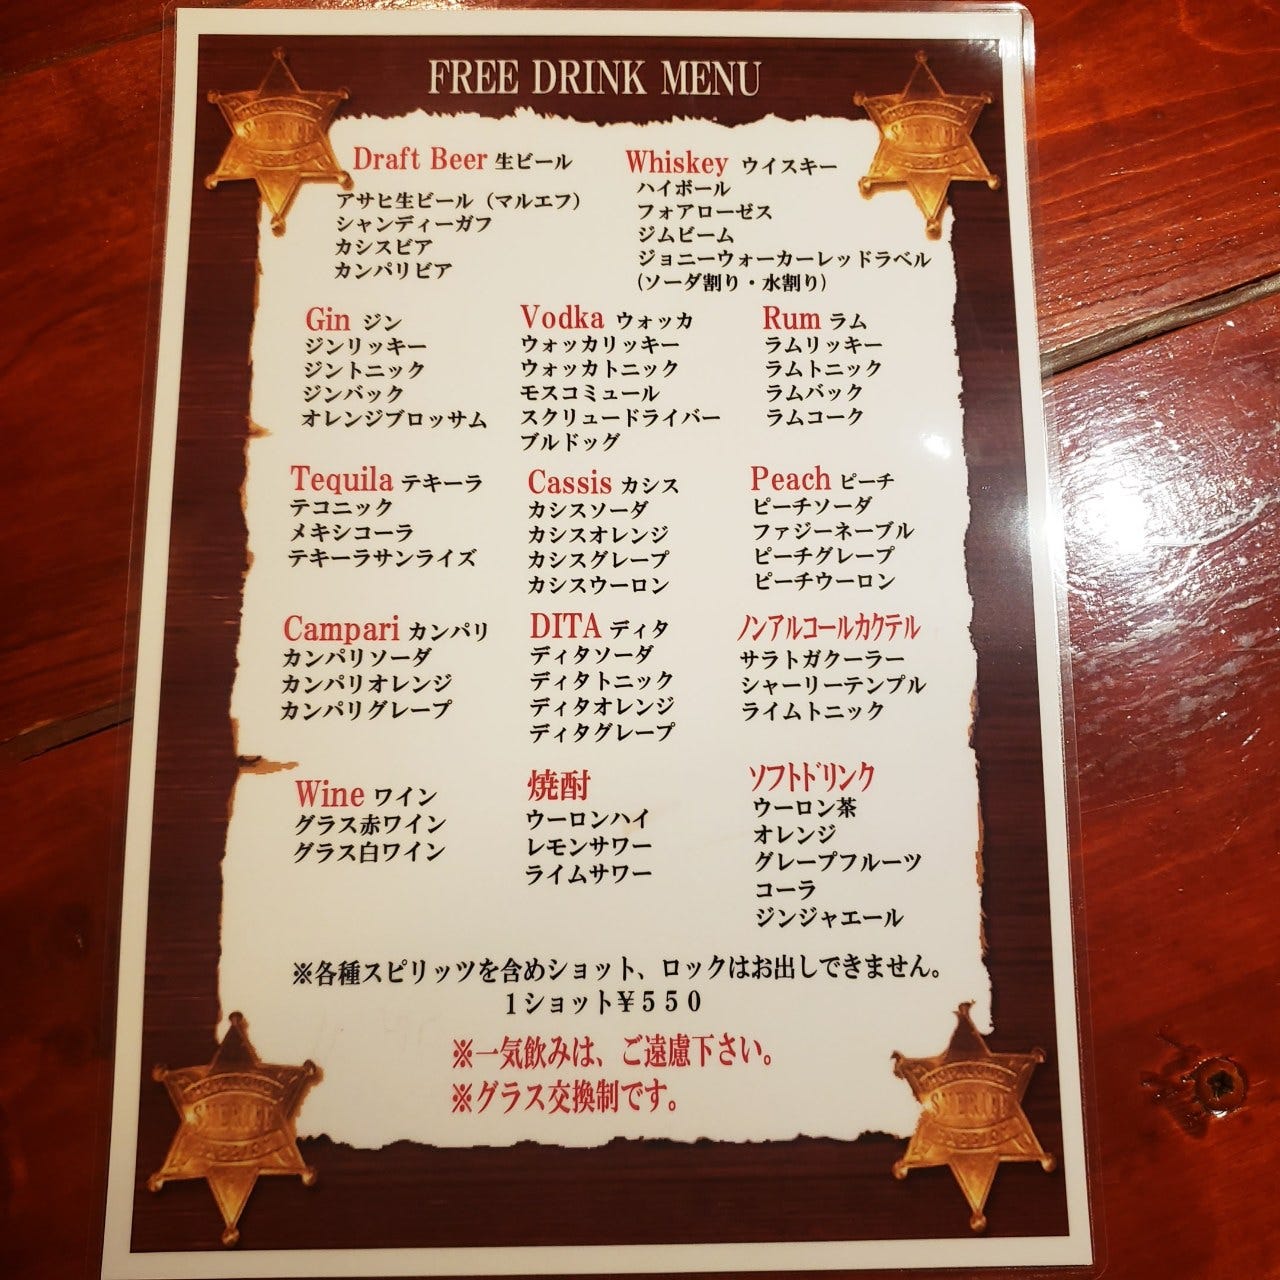 FREE DRINK MENU
Draft Beer 生ビール
アサヒ生ビール（マルエフ）
シャンディーガフ
カシスビア
カンパリビア
Whiskey ウイスキー
ハイボール
フォアローゼス
ジムビーム
ジョニーウォーカーレッドラベル
(ソーダ割り・水割り)
Gin ジン
ジンリッキー
ジントニック
ジンバック
オレンジブロッサム
Vodka ウォッカ
ウォッカリッキー
ウォッカトニック
モスコミュール
スクリュードライバー
ブルドッグ
Rum ラム
ラムリッキー
ラムトニック
ラムバック
ラムコーク
Tequila テキーラ
テコニック
メキシコーラ
テキーラサンライズ
Cassis カシス
カシスソーダ
カシスオレンジ
カシスグレープ
カシスウーロン
Peach ピーチ
ピーチソーダ
ファジーネーブル
ピーチグレープ
ピーチウーロン
Campari カンパリ
カンパリソーダ
カンパリオレンジ
カンパリグレープ
DITA ディタ
ディタソーダ
ディタトニック
ディタオレンジ
ディタグレープ
ノンアルコールカクテル
サラトガクーラー
シャーリーテンプル
ライムトニック
Wine ワイン
グラス赤ワイン
グラス白ワイン
焼酎
ウーロンハイ
レモンサワー
ライムサワー
ソフトドリンク
ウーロン茶
オレンジ
グレープフルーツ
コーラ
ジンジャエール
※各種スピリッツを含めショット、ロックはお出しできません。
１ショット￥５５０
※一気飲みは、ご遠慮下さい。
※グラス交換制です。
SHERIFF
SHERIFF
SHERIFF
SHERIFF